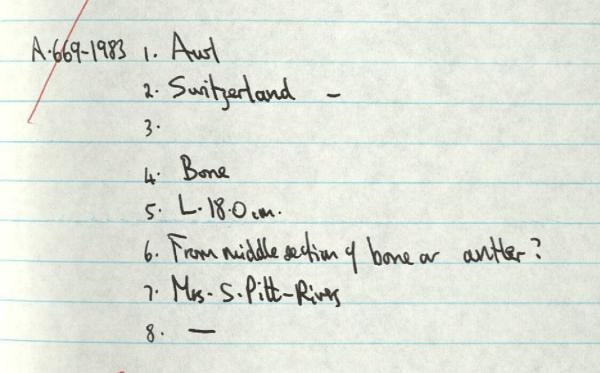 A.669-1983 1. Awl
2. Switzerland -
3.
4. Bone
5. L. 18.0 cm.
6. From middle section of bone or antler?
7. Mrs. S. Pitt-Rivers
8. —